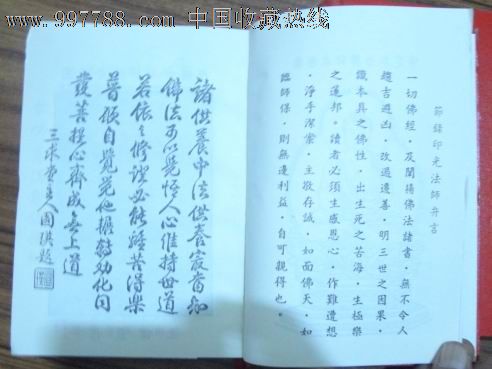 www.997788.com 中国收藏热线
節錄印光法師弁言
一切佛經・及闡揚佛法諸書・無不令人
趨吉避凶・改過遷善・明三世之因果・
識本具之佛性・出生死之苦海・生極樂
之蓮邦・讀者必須生感恩心・作難遭想
・淨手潔案・主敬存誠・如面佛天・如
臨師保・則無邊利益・自可親得也。
諸供養中法供養最
佛法可以覺悟人心維持世道
若依之修證必能離苦得樂
普願自覺覺他轉化同
發菩提心齊成無上道
三求堂主人圓瑛題